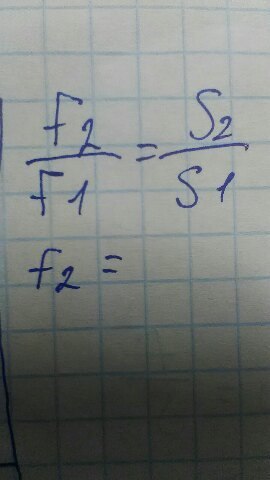 F2/F1 = S2/S1
F2 =